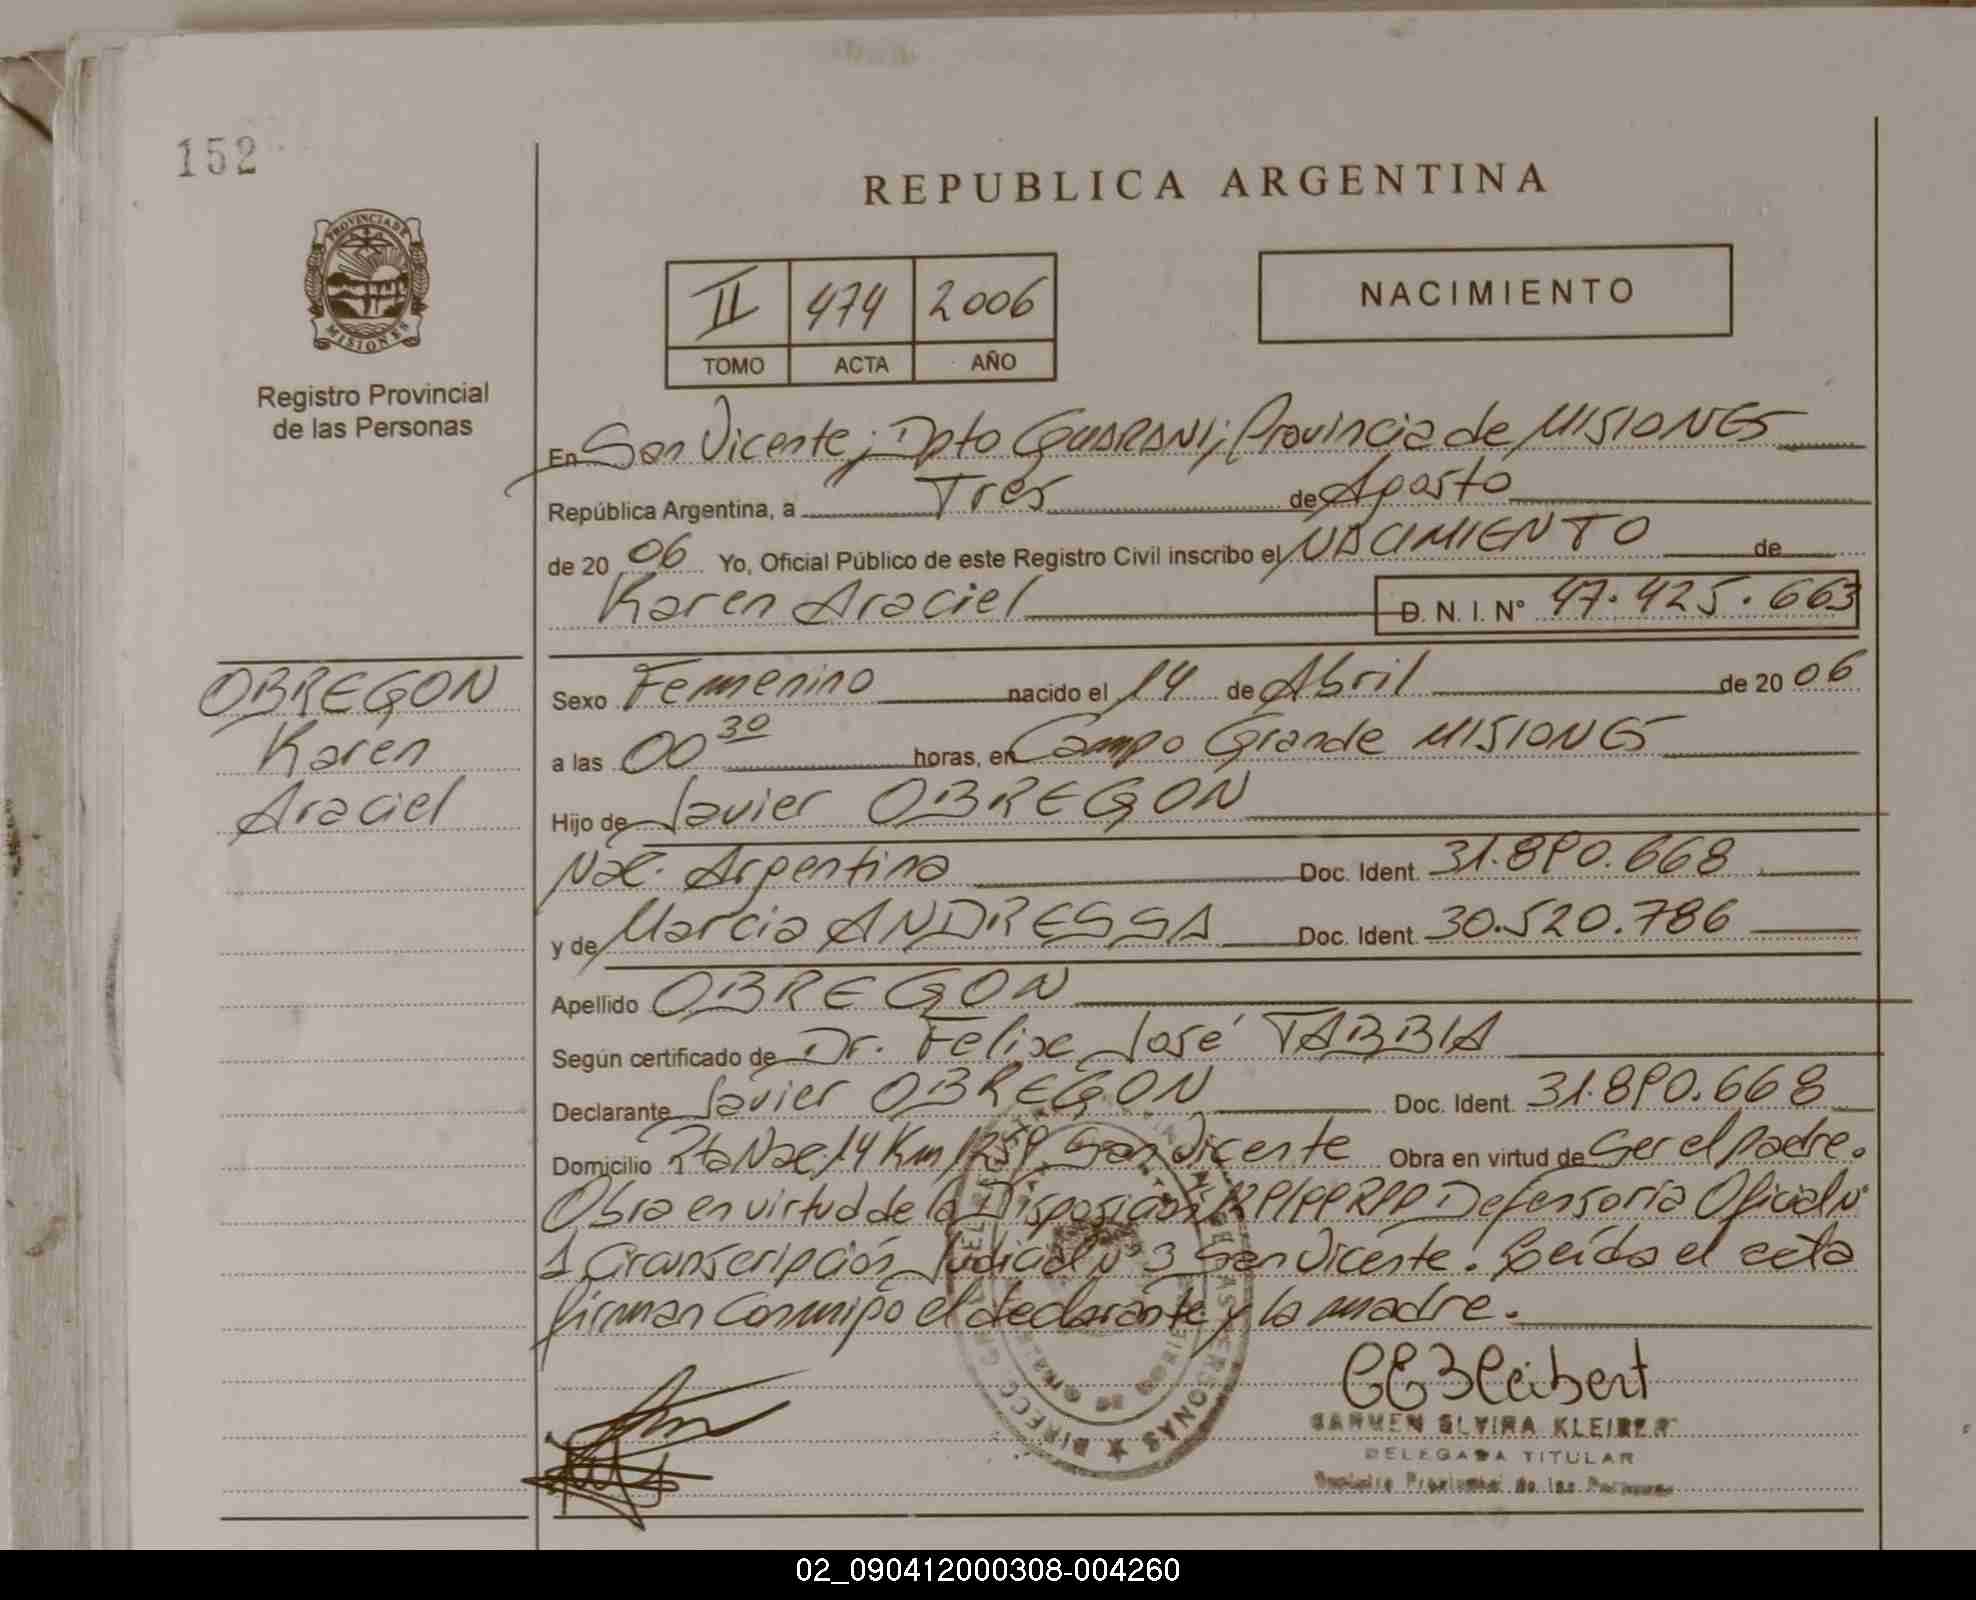 152
REPUBLICA ARGENTINA
PROVINCIA DE MISIONES
II 474 2006
TOMO ACTA AÑO
NACIMIENTO
Registro Provincial
de las Personas
En San Vicente; Dpto GUARANI; Provincia de MISIONES
República Argentina, a Tres de Agosto
de 20 06 Yo, Oficial Público de este Registro Civil inscribo el NACIMIENTO de
Karen Araciel D. N. I. N° 47.425.663
OBREGON
Karen
Araciel
Sexo Femenino nacido el 14 de Abril de 20 06
a las 00 30 horas, en Campo Grande MISIONES
Hijo de Javier OBREGON
Nac. Argentina Doc. Ident. 31.890.668
y de Marcia ANDRESSA Doc. Ident. 30.520.786
Apellido OBREGON
Según certificado de Dr. Felix José TABBIA
Declarante Javier OBREGON Doc. Ident. 31.890.668
Domicilio Rta Nac 14 Km 1259 San Vicente Obra en virtud de Ser el padre.
Obra en virtud de la Disposición Defensoria Oficial N°
1 Circunscripción Judicial N° 3 San Vicente. Leída el acta
firman conmigo el declarante y la madre.
CARMEN ELVIRA KLEIBER
DELEGADA TITULAR
Registro Provincial de las Personas
02_090412000308-004260